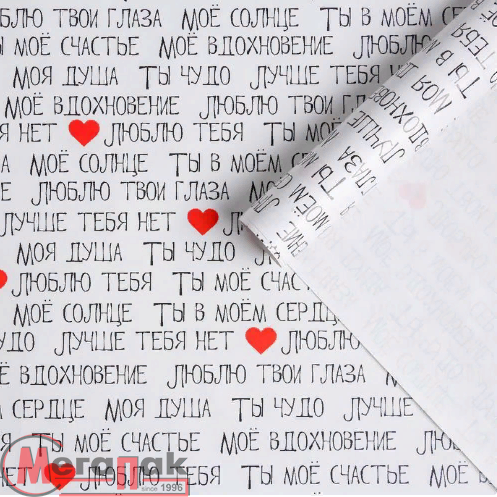 БЛЮ ТВОИ ГЛАЗА МОЁ СОЛНЦЕ ТЫ В МОЁМ СЕ
Ы МОЁ СЧАСТЬЕ МОЁ ВДОХНОВЕНИЕ ЛЮБЛЮ
МОЯ ДУША ТЫ ЧУДО ЛУЧШЕ ТЕБЯ Н
МОЁ ВДОХНОВЕНИЕ ЛЮБЛЮ ТВОИ ГЛ
Я НЕТ ЛЮБЛЮ ТЕБЯ ТЫ МОЁ
А МОЁ СОЛНЦЕ ТЫ В МОЁМ С
Е ЛЮБЛЮ ТВОИ ГЛАЗА МО
ЛУЧШЕ ТЕБЯ НЕТ Л
МОЯ ДУША ТЫ ЧУДО Л
ЛЮБЛЮ ТЕБЯ ТЫ МОЁ СЧАС
МОЁ СОЛНЦЕ ТЫ В МОЁМ СЕРДЦ
УДО ЛУЧШЕ ТЕБЯ НЕТ ЛЮБЛЮ
Ё ВДОХНОВЕНИЕ ЛЮБЛЮ ТВОИ ГЛАЗА М
М СЕРДЦЕ МОЯ ДУША ТЫ ЧУДО ЛУЧШЕ
Я ТЫ МОЁ СЧАСТЬЕ МОЁ ВДОХНОВЕНИЕ ЛЮБ
НЕТ ЛЮБЛЮ ТЕБЯ ТЫ МОЁ СЧАСТЬЕ МОЁ В
МегаПак
since 1996
ТЫ В МОЁМ
ТЕБЯ
МОЯ Д
ВДОХНОВ
ЛУЧШЕ
ГЛАЗА
ТЫ
МОЁМ С
ЛЮ
НИЕ